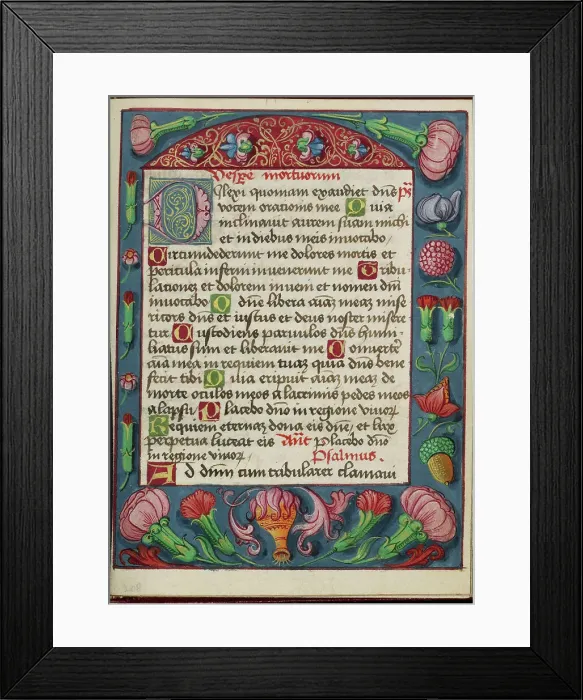 Vespe mortuorum
Dilexi quoniam exaudiet dns ps
vocem orationis mee Quia
inclinavit aurem suam michi
et in diebus meis invocabo
Circumdederunt me dolores mortis et
pericula inferni invenerunt me Tribu-
lationez et dolorem inveni et nomen dni
invocabo O dne libera aiaz meaz mise
ricors dns et iustus et deus noster misere
tur Custodiens parvulos dns humi-
liatus sum et liberavit me Convertere
aia mea in requiem tuaz quia dns bene
fecit tibi Quia eripuit aiaz meaz de
morte oculos meos a lacrimis pedes meos
a lapsu Placebo dno in regione vivoꝝ
Requiem eternaz dona eis dne, et lux
perpetua luceat eis Ant Placebo dno
in regione vivoꝝ Psalmus.
Ad dnm cum tribularer clamavi